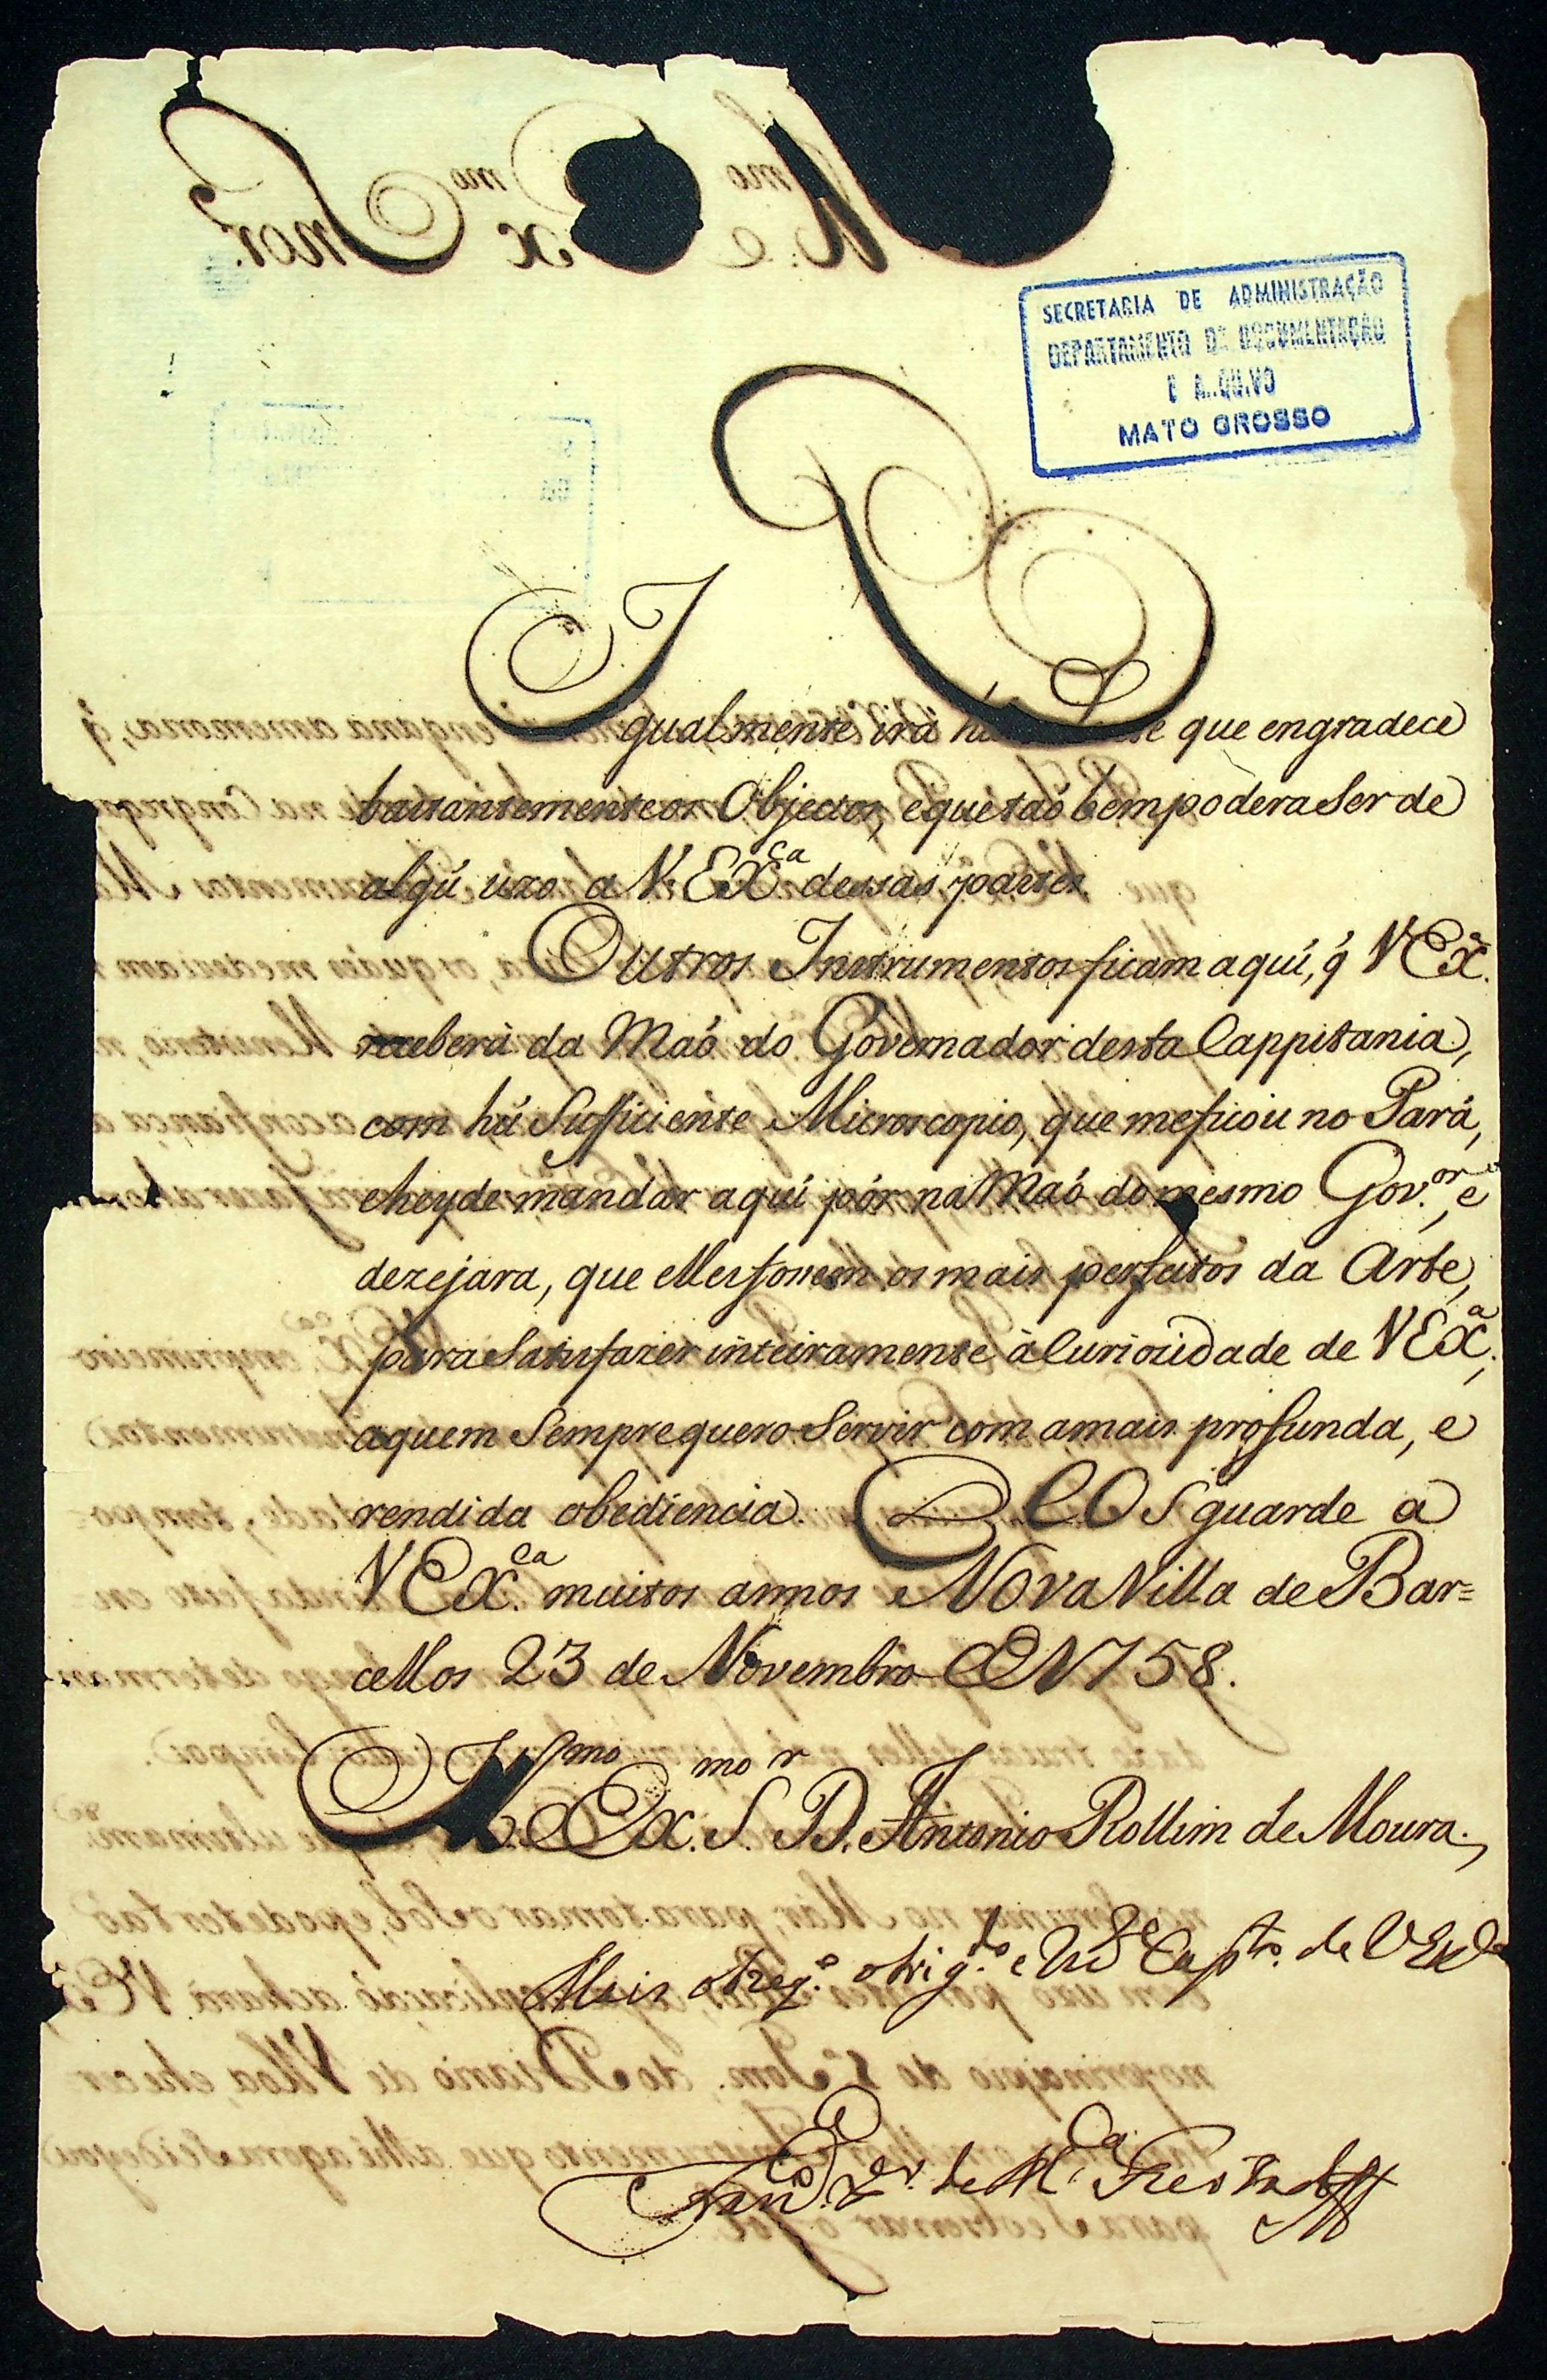 SECRETARIA DE ADMINISTRAÇÃO
DEPARTAMENTO DE DOCUMENTAÇÃO
E ARQUIVO
MATO GROSSO
Igualmente irá que engradece
bastantemente os Objectos, e que taõ bem poderá Ser de
algú uzo a V. EX.ᶜᵃ dessas partes
Outros Instrumentos ficam aquí, q́ V Exᵃ.
receberá da Maõ do Governador desta Cappitania,
com hú Sufficiente Microscopio, que me ficou no Pará,
e hey de mandar aquí pór na Maõ do mesmo Gov.ᵒʳ, e
dezejara, que elles fossem os mais perfeitos da Arte,
para Satisfazer inteiramente à Curiozidade de V EXᵃ,
a quem Sempre quero Servir com a mais profunda, e
rendida obediencia. DEOS guarde a
V EX.ᶜᵃ muitos annos Nova Villa de Bar=
cellos 23 de Novembro 1758.
Illᵐᵒ. Ex.ᵐᵒ S.ʳ D. Antonio Rollim de Moura.
Mais obrig.ᵈᵒ e de V Exᶜᵃ
de M.ᶜᵃ Furtado